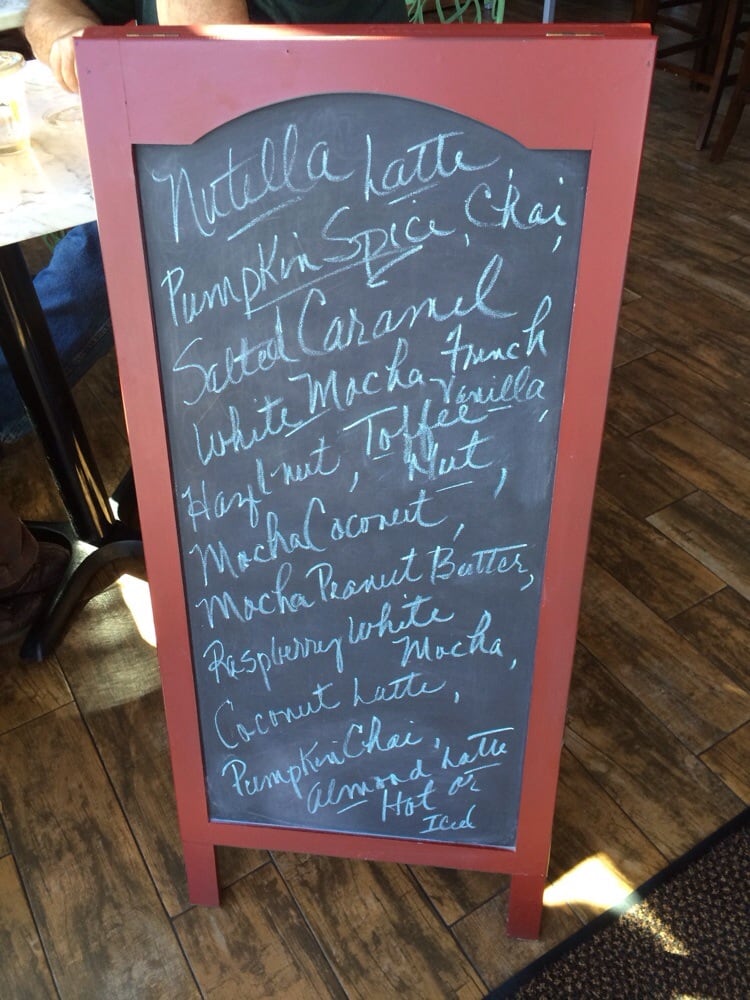 Nutella Latte,
Pumpkin Spice, Chai,
Salted Caramel
White Mocha, French
Vanilla,
Hazlnut, Toffee
Nut,
Mocha Coconut,
Mocha Peanut Butter,
Raspberry White
Mocha,
Coconut Latte,
Pumpkin Chai,
Almond Latte
Hot or
Iced